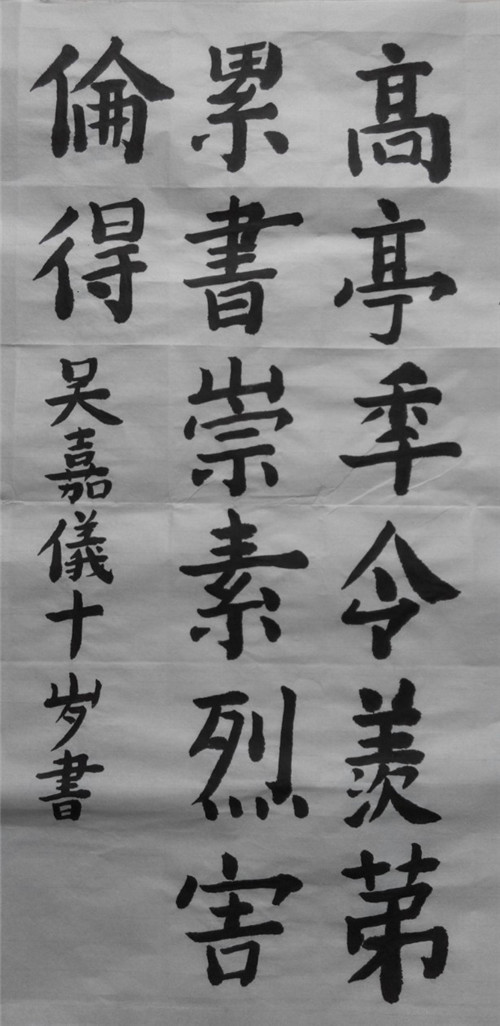 高亭秊令羡苐
累書崇素烈害
倫得
吴嘉儀十岁書